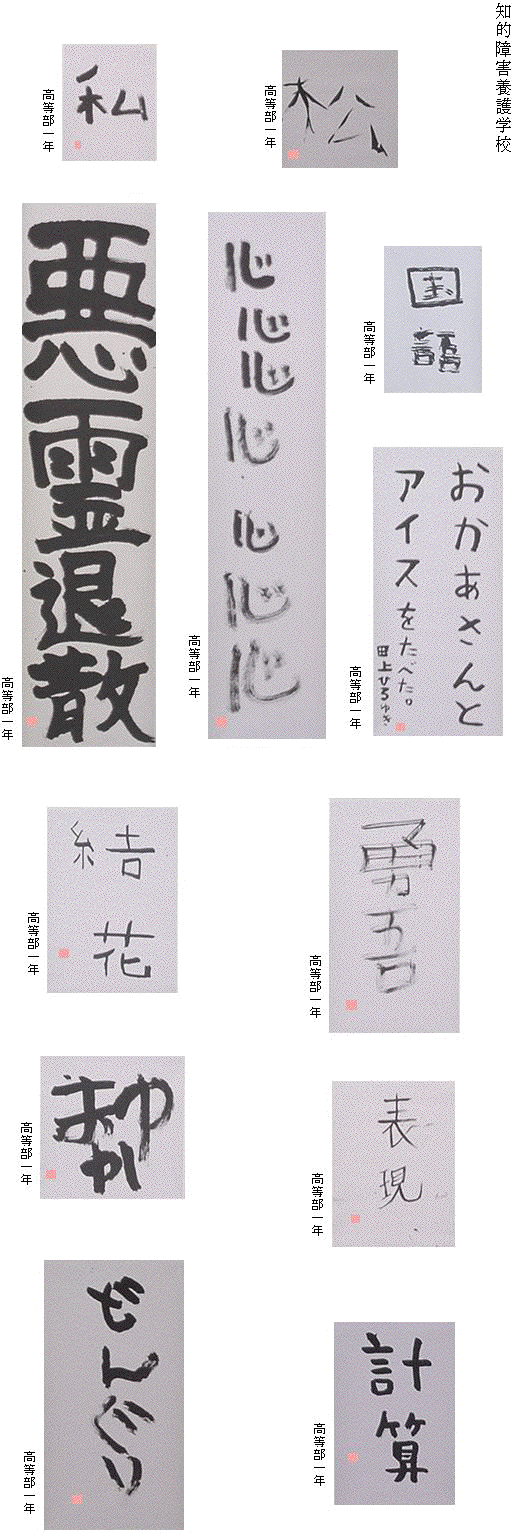 知的障害養護学校
松
高等部一年
私
高等部一年
国語
高等部一年
心心心心心心心
高等部一年
悪霊退散
高等部一年
おかあさんと
アイスをたべた。
田上ひろゆき
高等部一年
勇吾
高等部一年
結花
高等部一年
表現
高等部一年
ゆか
高等部一年
計算
高等部一年
どんぐり
高等部一年